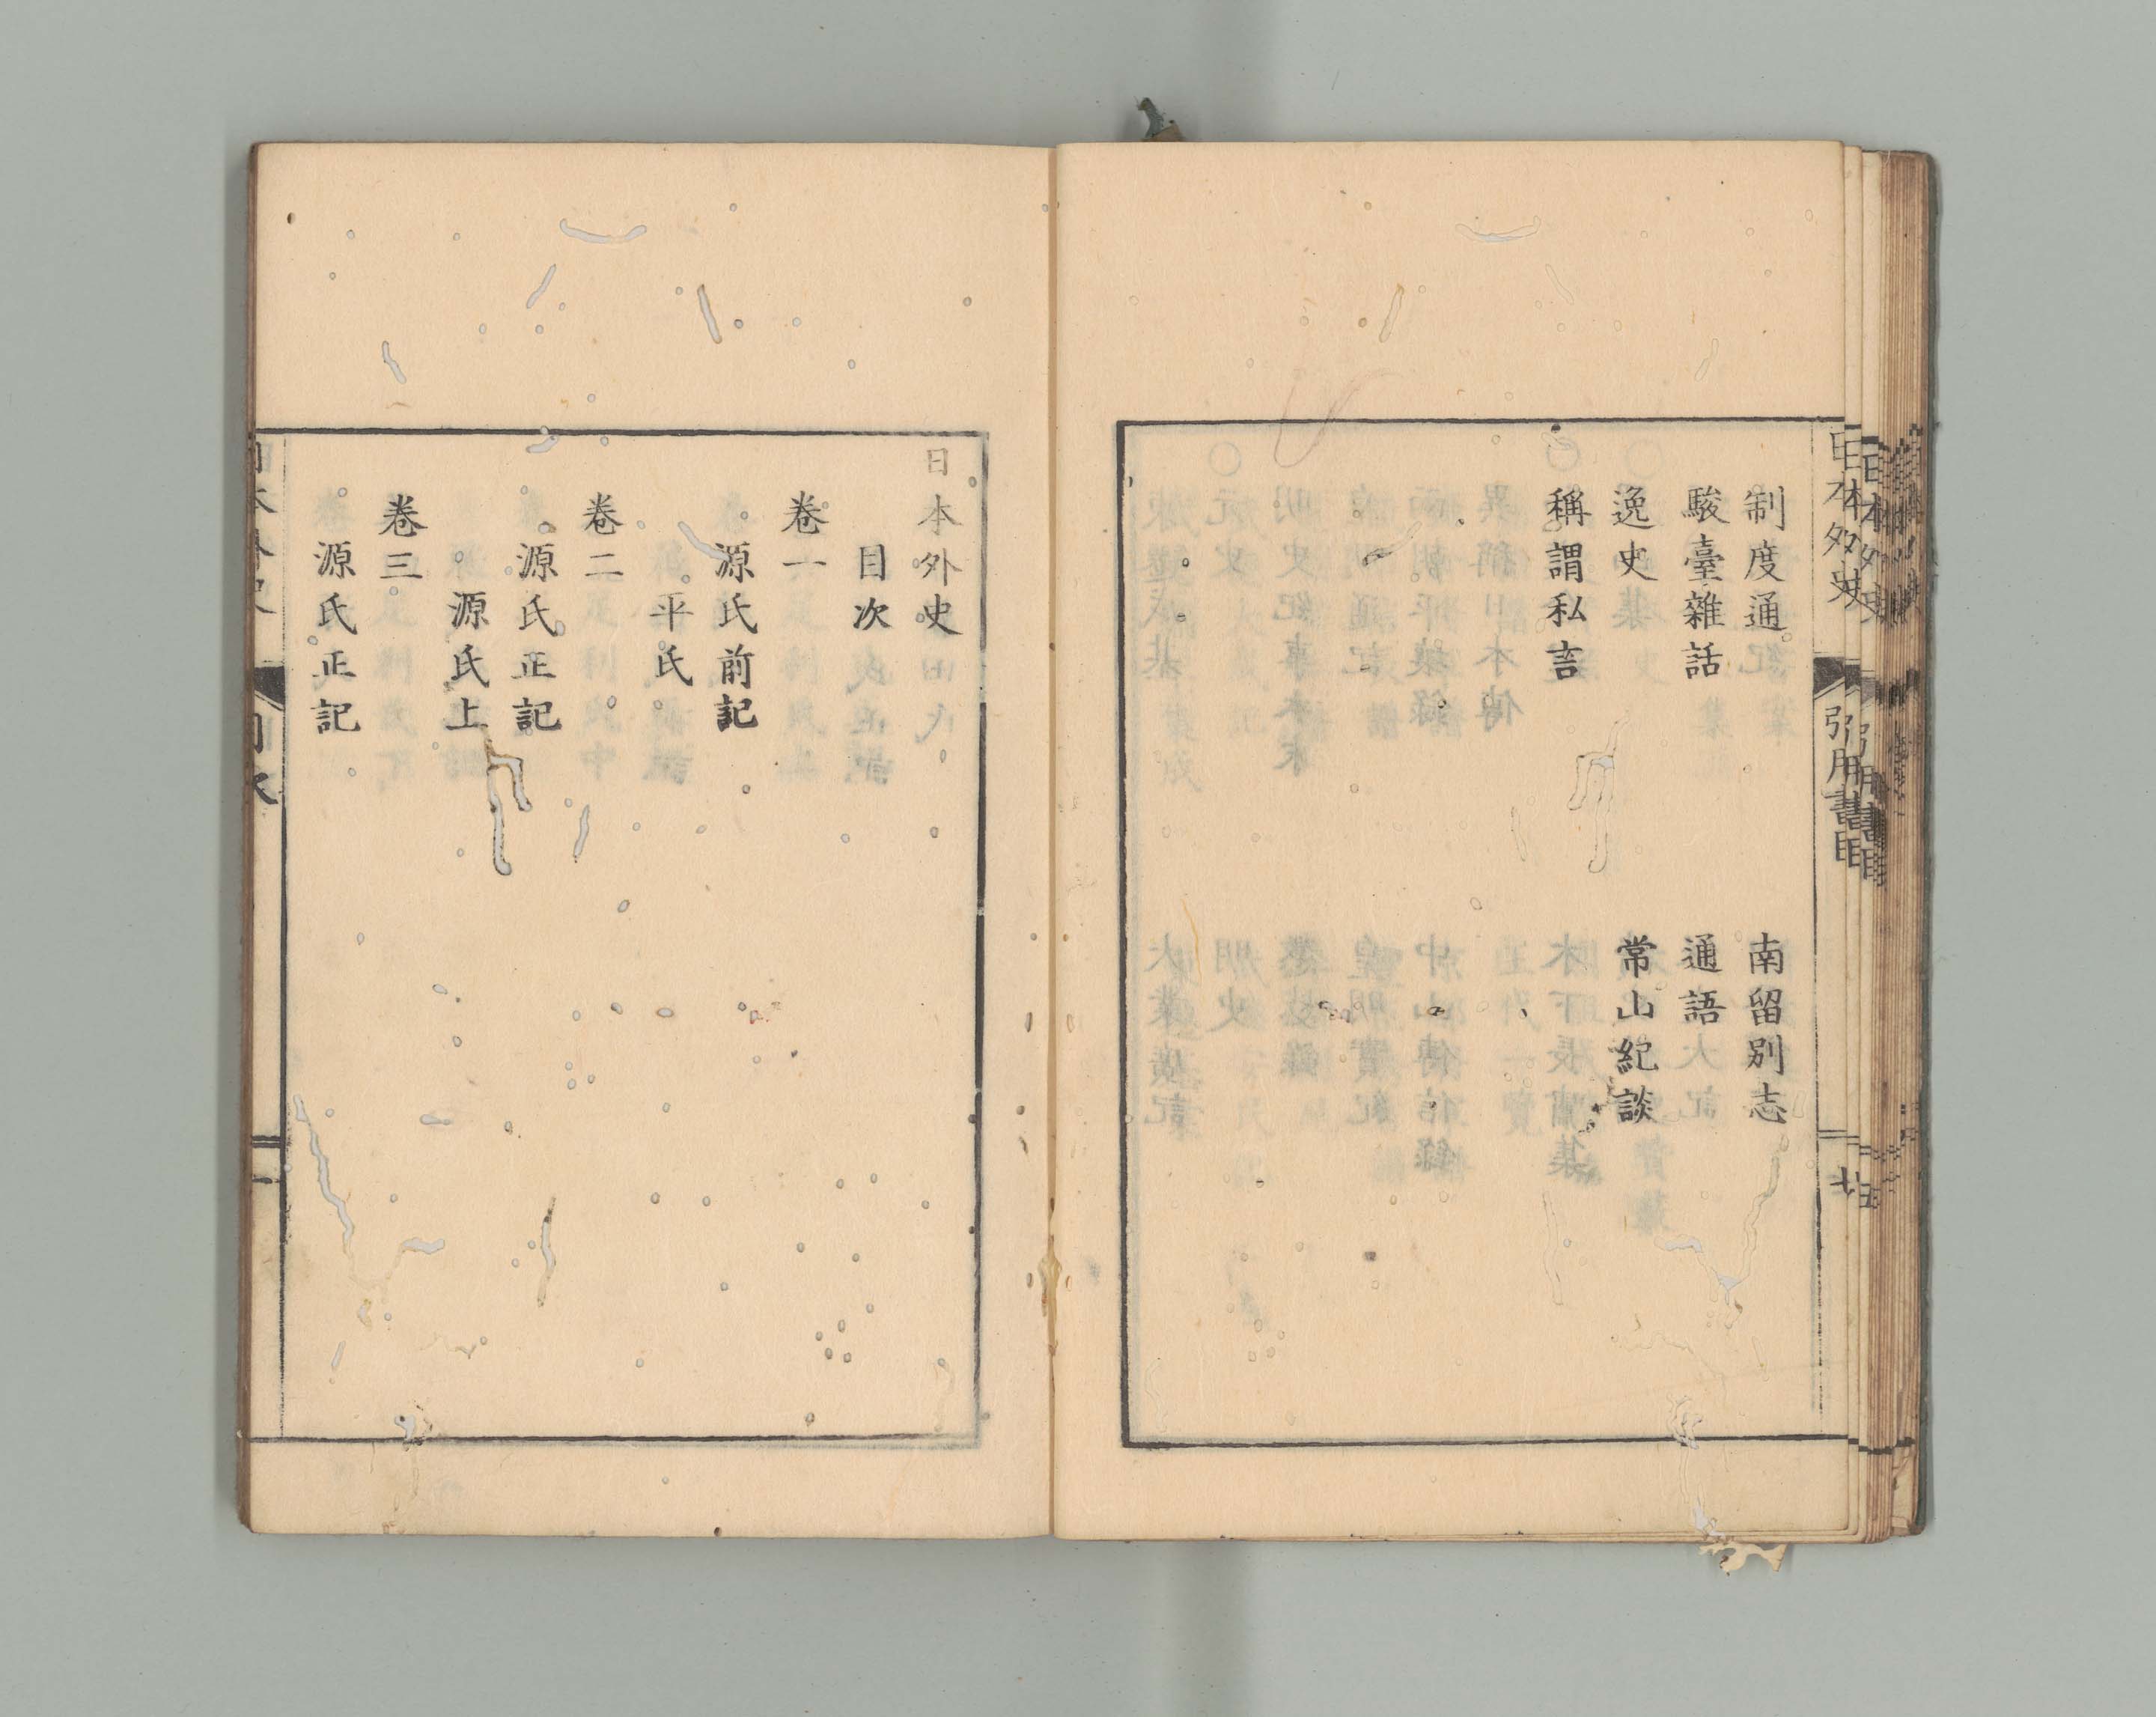 制度通
南留別志
駿臺雜話
通語
逸史
常山紀談
稱謂私言
日本外史
引用書目
日本外史
目次
卷一
源氏前記
平氏
卷二
源氏正記
源氏上
卷三
源氏正記